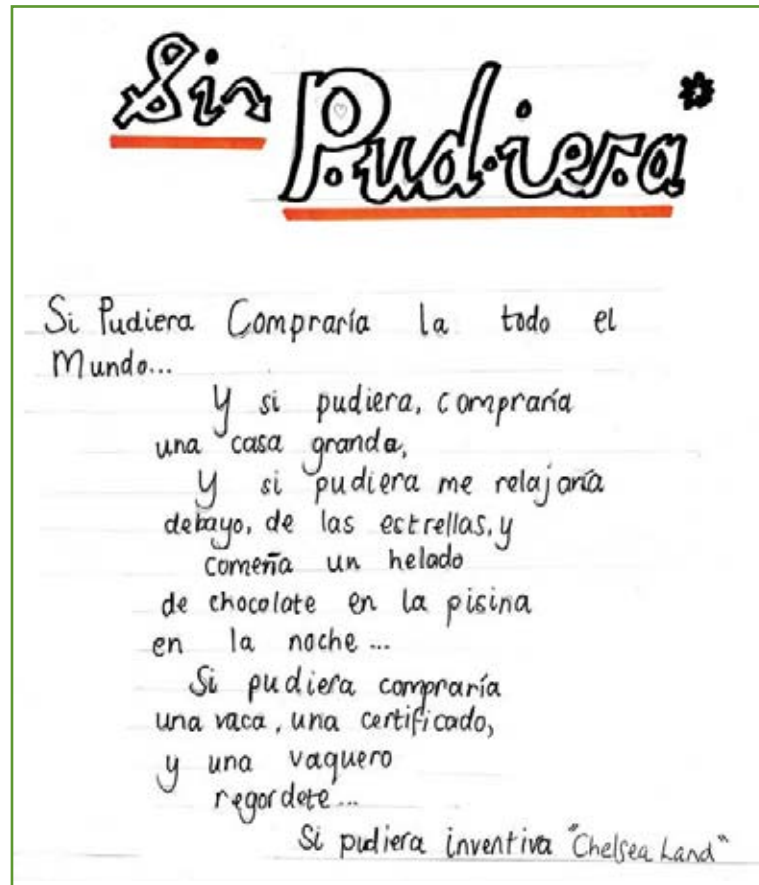 Si Pudiera*
Si Pudiera Compraría la todo el
Mundo...
Y si pudiera, compraría
una casa grande,
Y si pudiera me relajaría
debayo, de las estrellas, y
comería un helado
de chocolate en la pisina
en la noche...
Si pudiera compraría
una vaca, una certificado,
y una vaquero
regordete...
Si pudiera inventiva "Chelsea Land"